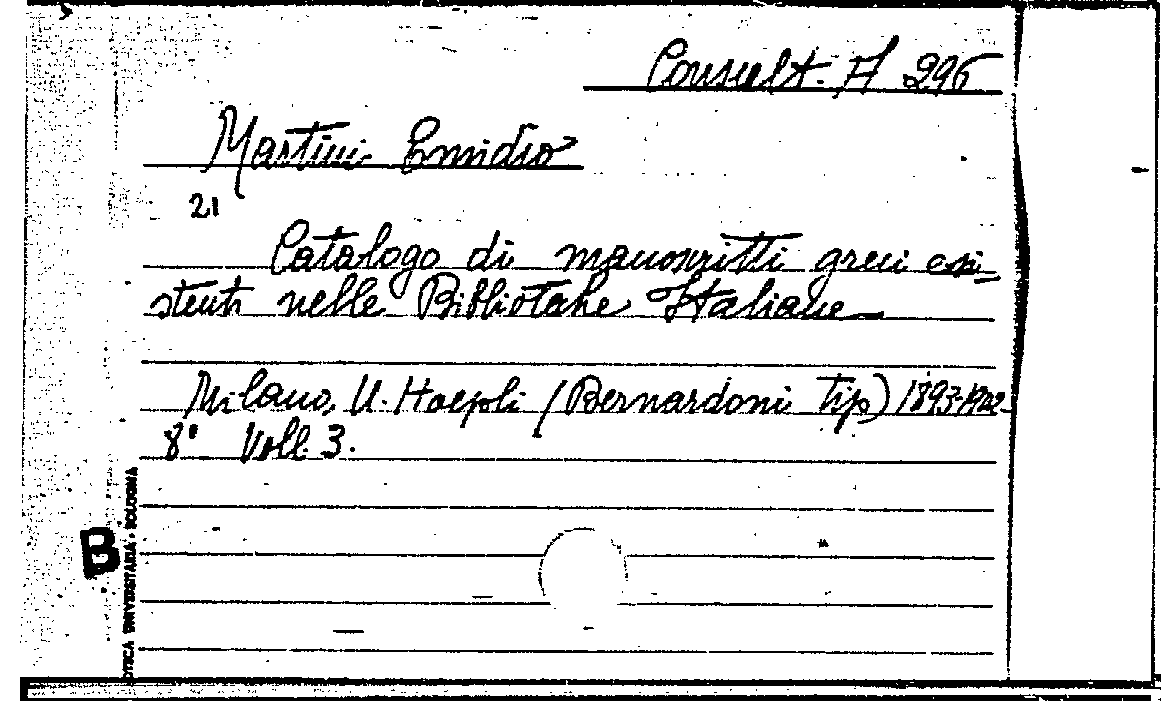 Consult. A 296
Martini Emidio
21
Catalogo di manoscritti greci esi-
stenti nelle Biblioteche Italiane
Milano, U. Hoepli (Bernardoni tip) 1893-1902
8° Voll. 3.
B
OTECA UNIVERSITARIA - BOLOGNA